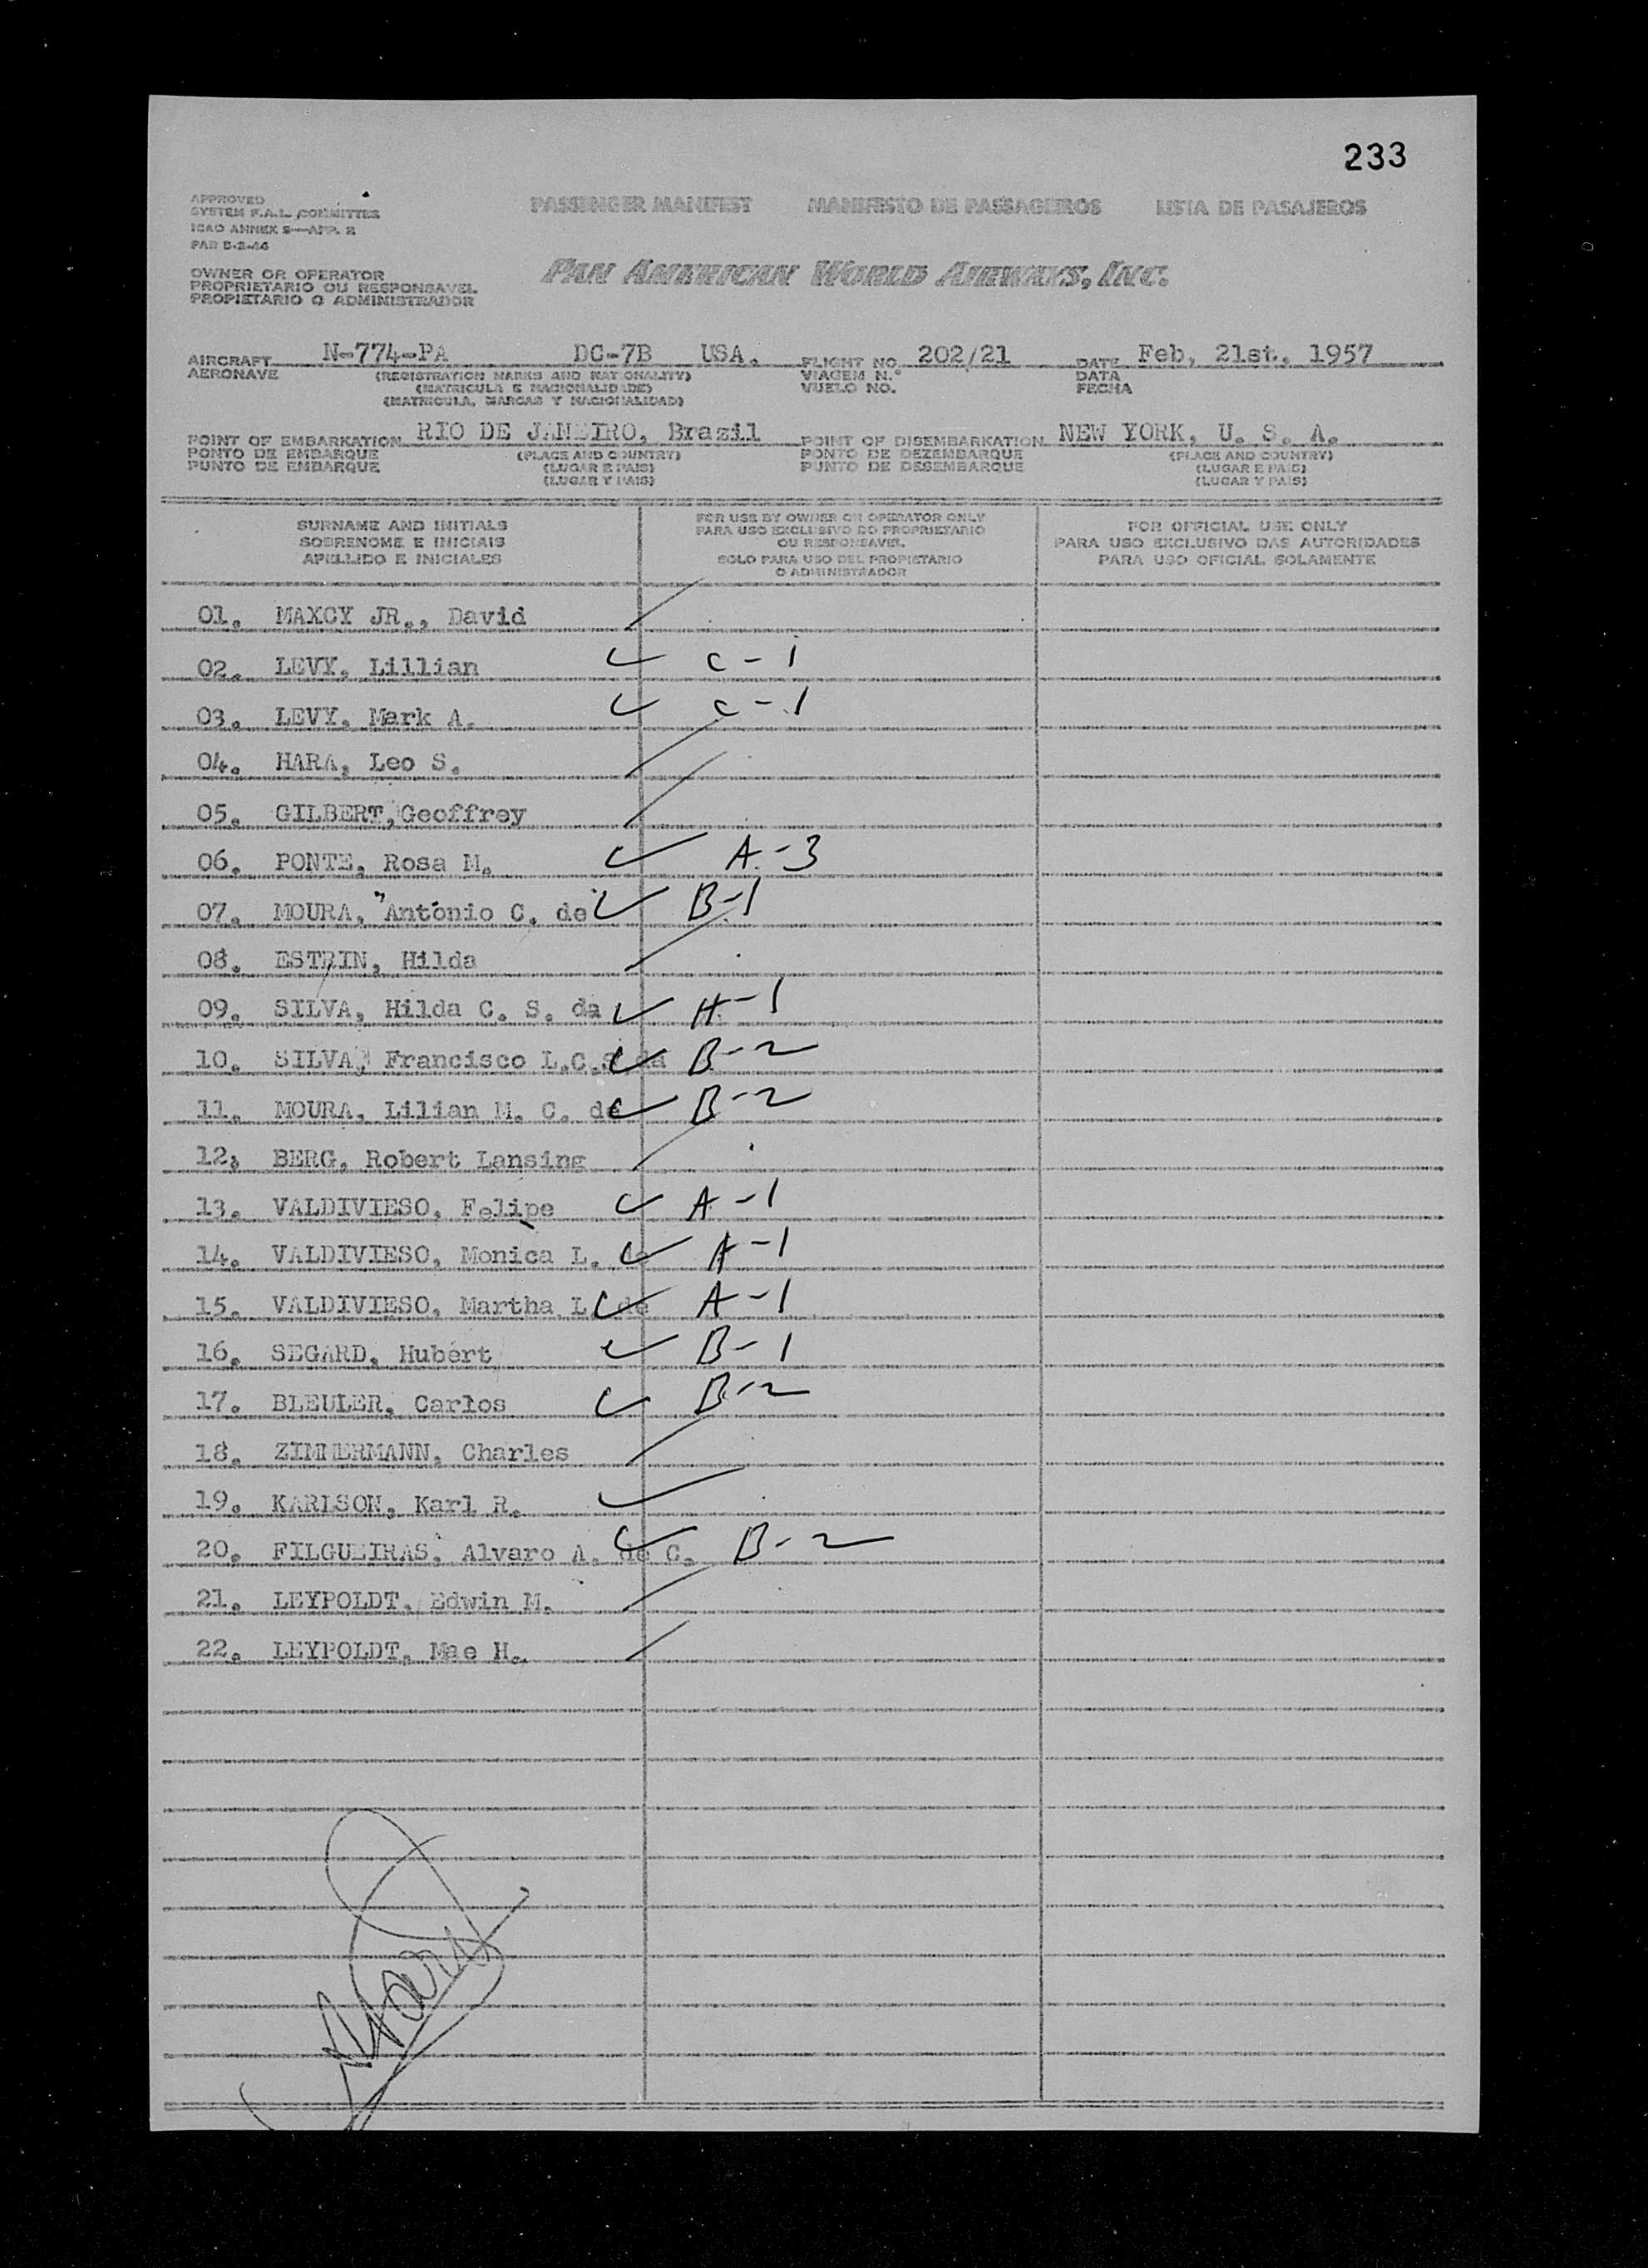 233
APPROVED
SYSTEM F.A.L. COMMITTEE
ICAO ANNEX 9—APP. 2
PAB 5-2-46
PASSENGER MANIFEST MANIFESTO DE PASSAGEIROS LISTA DE PASAJEROS
OWNER OR OPERATOR
PROPRIETARIO OU RESPONSAVEL
PROPIETARIO O ADMINISTRADOR
PAN AMERICAN WORLD AIRWAYS, INC.
AIRCRAFT N-774-PA DC-7B USA. FLIGHT NO. 202/21 DATE Feb, 21st, 1957
AERONAVE (REGISTRATION MARKS AND NATIONALITY) VIAGEM N.° DATA
(MATRICULA E NACIONALIDADE) VUELO NO. FECHA
(MATRICULA, MARCAS Y NACIONALIDAD)
POINT OF EMBARKATION RIO DE JANEIRO, Brazil POINT OF DISEMBARKATION NEW YORK, U. S. A.
PONTO DE EMBARQUE (PLACE AND COUNTRY) PONTO DE DEZEMBARQUE (PLACE AND COUNTRY)
PUNTO DE EMBARQUE (LUGAR E PAIS) PUNTO DE DESEMBARQUE (LUGAR E PAIS)
(LUGAR Y PAIS) (LUGAR Y PAIS)
SURNAME AND INITIALS
SOBRENOME E INICIAIS
APELLIDO E INICIALES
FOR USE BY OWNER OR OPERATOR ONLY
PARA USO EXCLUSIVO DO PROPRIETARIO
OU RESPONSAVEL
SOLO PARA USO DEL PROPIETARIO
O ADMINISTRADOR
FOR OFFICIAL USE ONLY
PARA USO EXCLUSIVO DAS AUTORIDADES
PARA USO OFICIAL SOLAMENTE
01. MAXCY JR., David
02. LEVY, Lillian C-1
03. LEVY, Mark A. C-1
04. HARA, Leo S.
05. GILBERT, Geoffrey
06. PONTE, Rosa M. A-3
07. MOURA, "Antonio C. de" B-1
08. ESTRIN, Hilda
09. SILVA, Hilda C. S. da H-1
10. SILVA, Francisco L.C.S. da B-2
11. MOURA, Lilian M. C. de B-2
12. BERG, Robert Lansing
13. VALDIVIESO, Felipe A-1
14. VALDIVIESO, Monica L. de A-1
15. VALDIVIESO, Martha L. de A-1
16. SEGARD, Hubert B-1
17. BLEULER, Carlos B-2
18. ZIMMERMANN, Charles
19. KARLSON, Karl R.
20. FILGUEIRAS, Alvaro A. de C. B-2
21. LEYPOLDT, Edwin M.
22. LEYPOLDT, Mae H.